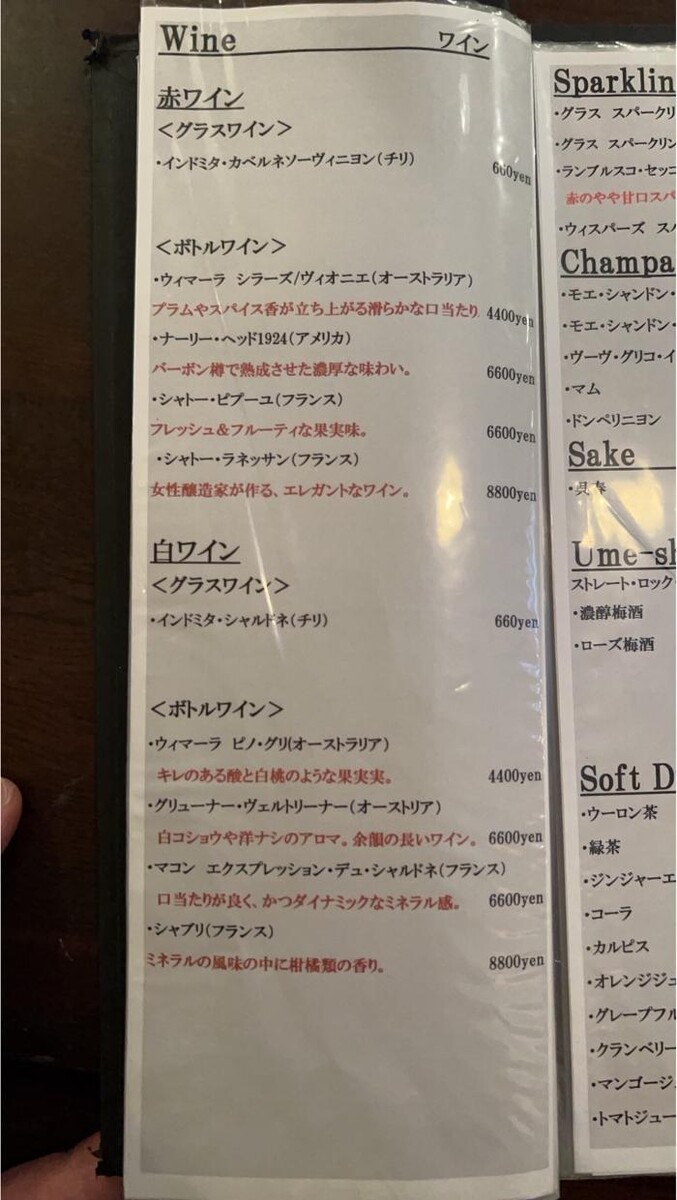 Wine ワイン
赤ワイン
<グラスワイン>
・インドミタ・カベルネソーヴィニヨン(チリ) 660yen
<ボトルワイン>
・ウィマーラ シラーズ/ヴィオニエ(オーストラリア)
プラムやスパイス香が立ち上がる滑らかな口当たり 4400yen
・ナーリー・ヘッド1924(アメリカ)
バーボン樽で熟成させた濃厚な味わい。 6600yen
・シャトー・ピプーユ(フランス)
フレッシュ&フルーティな果実味。 6600yen
・シャトー・ラネッサン(フランス)
女性醸造家が作る、エレガントなワイン。 8800yen
白ワイン
<グラスワイン>
・インドミタ・シャルドネ(チリ) 660yen
<ボトルワイン>
・ウィマーラ ピノ・グリ(オーストラリア)
キレのある酸と白桃のような果実実。 4400yen
・グリューナー・ヴェルトリーナー(オーストリア)
白コショウや洋ナシのアロマ。余韻の長いワイン。 6600yen
・マコン エクスプレッション・デュ・シャルドネ(フランス)
口当たりが良く、かつダイナミックなミネラル感。 6600yen
・シャブリ(フランス)
ミネラルの風味の中に柑橘類の香り。 8800yen
Sparklin
・グラス スパークリ
・グラス スパークリン
・ランブルスコ・セッコ
赤のやや甘口スパ
・ウィスパーズ スパ
Champa
・モエ・シャンドン・
・モエ・シャンドン・
・ヴーヴ・グリコ・イ
・マム
・ドンペリニヨン
Sake
Ume-sh
ストレート・ロック・
・濃醇梅酒
・ローズ梅酒
Soft D
・ウーロン茶
・緑茶
・ジンジャーエ
・コーラ
・カルピス
・オレンジジュ
・グレープフル
・クランベリー
・マンゴージュ
・トマトジュー